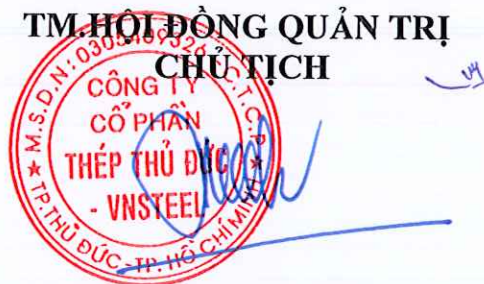 TM.HỘI ĐỒNG QUẢN TRỊ
CHỦ TỊCH
CÔNG TY
CỔ PHẦN
THÉP THỦ ĐỨC
- VNSTEEL
TP.THỦ ĐỨC - TP. HỒ CHÍ MINH